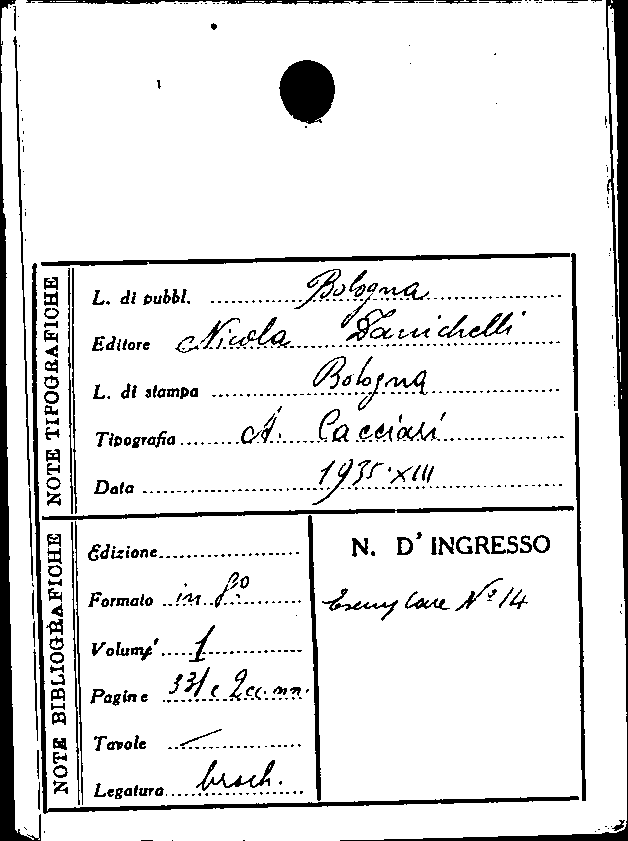 NOTE TIPOGRAFICHE
L. di pubbl. Bologna
Editore Nicola Zanichelli
L. di stampa Bologna
Tipografia A. Cacciari
Data 1935·XIII
NOTE BIBLIOGRAFICHE
Edizione
Formato in 8°
Volumi 1
Pagine 331 e 2 cc. nn.
Tavole —
Legatura broch.
N. D'INGRESSO
Esemplare N° 14